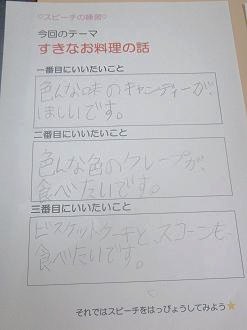 ♡スピーチの練習♡
今回のテーマ
すきなお料理の話
一番目にいいたいこと
色んな味のキャンディーが、
ほしいです。
二番目にいいたいこと
色んな色のクレープが、
食べたいです。
三番目にいいたいこと
ビスケットケーキと、スコーンも、
食べたいです。
それではスピーチをはっぴょうしてみよう★